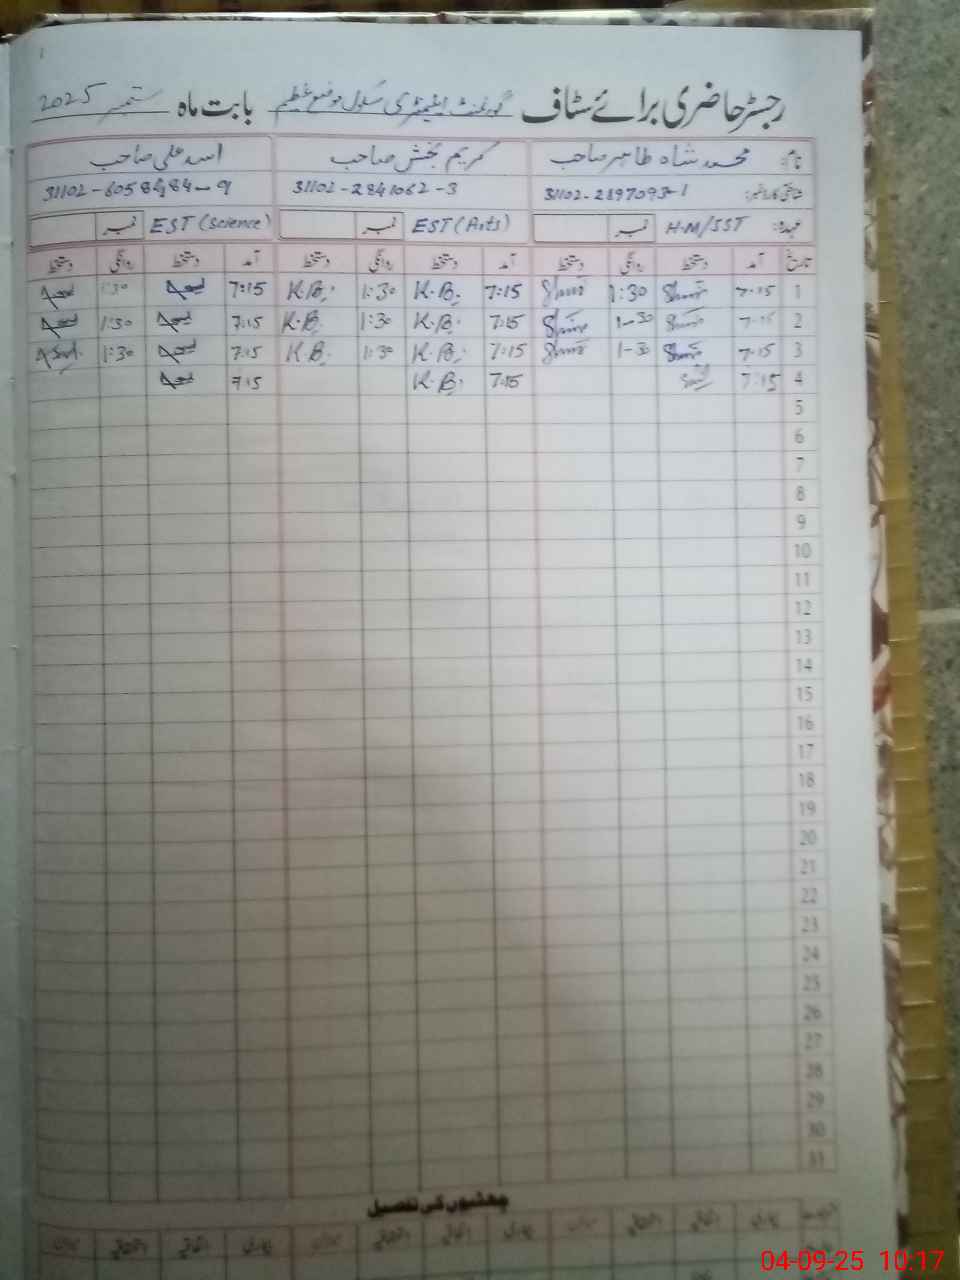 رجسٹر حاضری برائے سٹاف گورنمنٹ ایلیمنٹری سکول موضع عظیم بابت ماہ ستمبر 2025
نام: محمد شاہ طاہر صاحب کریم بخش صاحب اسد علی صاحب
شناختی کارڈ نمبر: 31102-2897093-1 31102-2841062-3 31102-6058484-9
عہدہ: H.M/SST نمبر EST (Arts) نمبر EST (Science) نمبر
تاریخ آمد دستخط روانگی دستخط آمد دستخط روانگی دستخط آمد دستخط روانگی دستخط
1 7:15 1:30 7:15 K.B. 1:30 K.B. 7:15 1:30
2 7:15 1-30 7:15 K.B. 1:30 K.B. 7:15 1:30
3 7:15 1-30 7:15 K.B. 1:30 K.B. 7:15 1:30
4 7:15 7:15 K.B. 7:15
5
6
7
8
9
10
11
12
13
14
15
16
17
18
19
20
21
22
23
24
25
26
27
28
29
30
31
چھٹیوں کی تفصیل
04-09-25 10:17